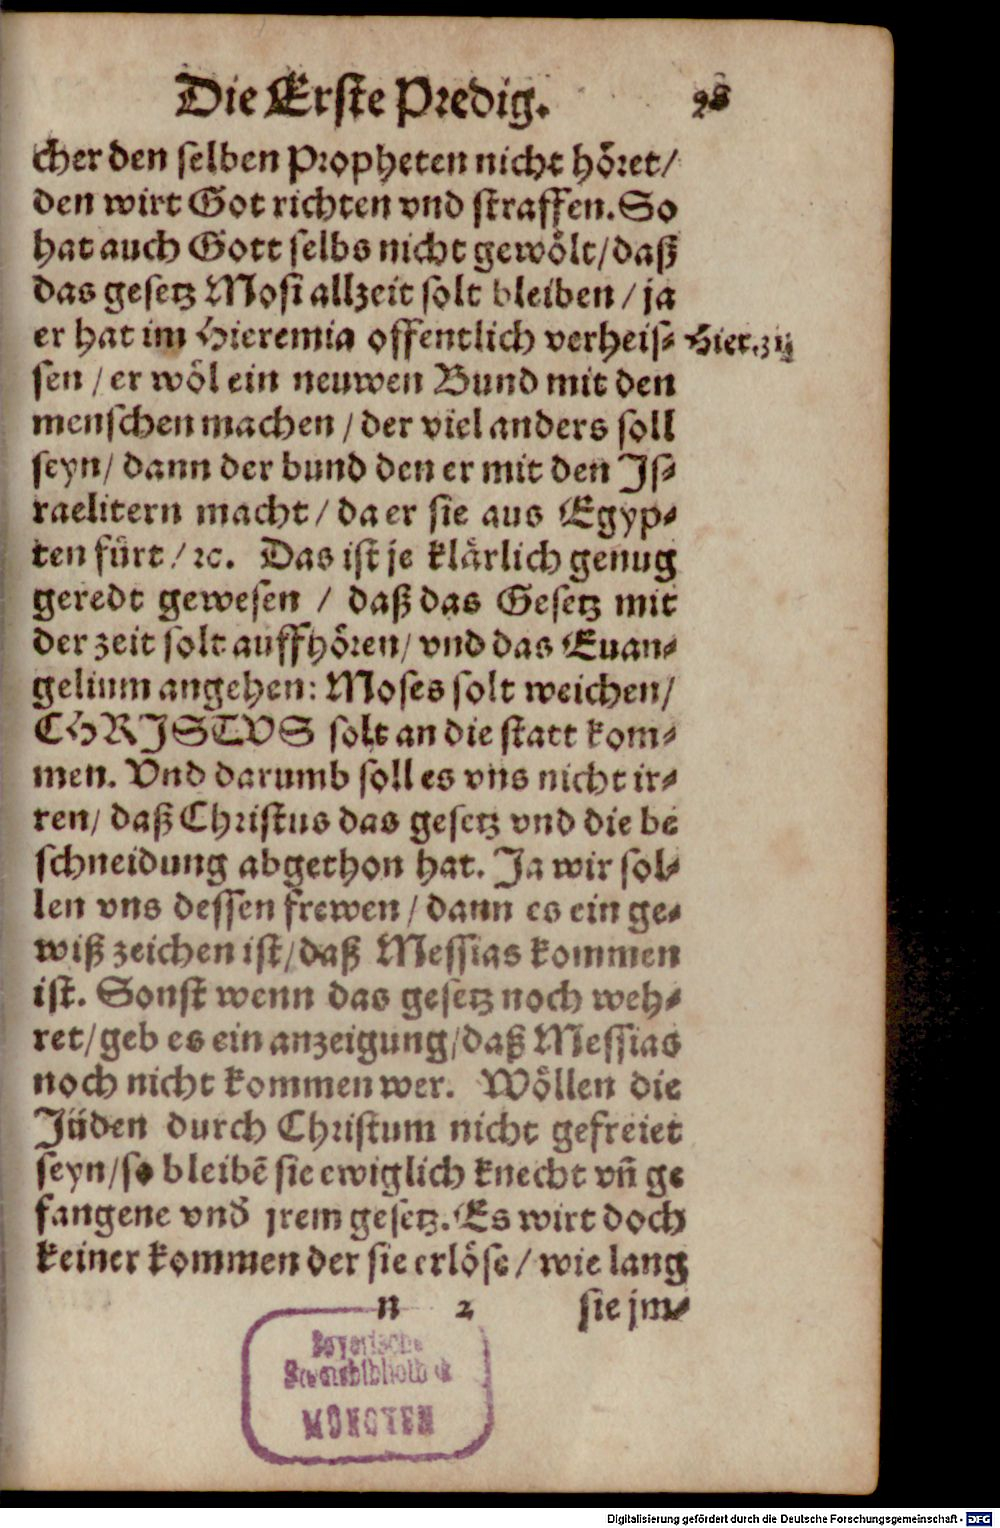 Die Erste Predig. 98
cher den selben Propheten nicht höret/
den wirt Got richten vnd straffen. So
hat auch Gott selbs nicht gewölt/ daß
das gesetz Mosi allzeit solt bleiben / ja
er hat im Hieremia offentlich verheis-
Hier. 31
sen / er wöl ein neuwen Bund mit den
menschen machen / der viel anders soll
seyn/ dann der bund den er mit den Js-
raelitern macht / da er sie aus Egyp-
ten fürt / ꝛc. Das ist je klärlich genug
geredt gewesen / daß das Gesetz mit
der zeit solt auffhören/ vnd das Euan-
gelium angehen: Moses solt weichen/
CHRJSTVS solt an die statt kom-
men. Vnd darumb soll es vns nicht ir-
ren/ daß Christus das gesetz vnd die be
schneidung abgethon hat. Ja wir sol-
len vns dessen frewen / dann es ein ge-
wiß zeichen ist/ daß Messias kommen
ist. Sonst wenn das gesetz noch weh-
ret/ geb es ein anzeigung/ daß Messias
noch nicht kommen wer. Wöllen die
Jüden durch Christum nicht gefreiet
seyn/ so bleibẽ sie ewiglich knecht vñ ge
fangene vnd̕ jrem gesetz. Es wirt doch
keiner kommen der sie erlöse / wie lang
n 2 sie jm-
Bayerische
Staatsbibliothek
MÜNCHEN
Digitalisierung gefördert durch die Deutsche Forschungsgemeinschaft - DFG